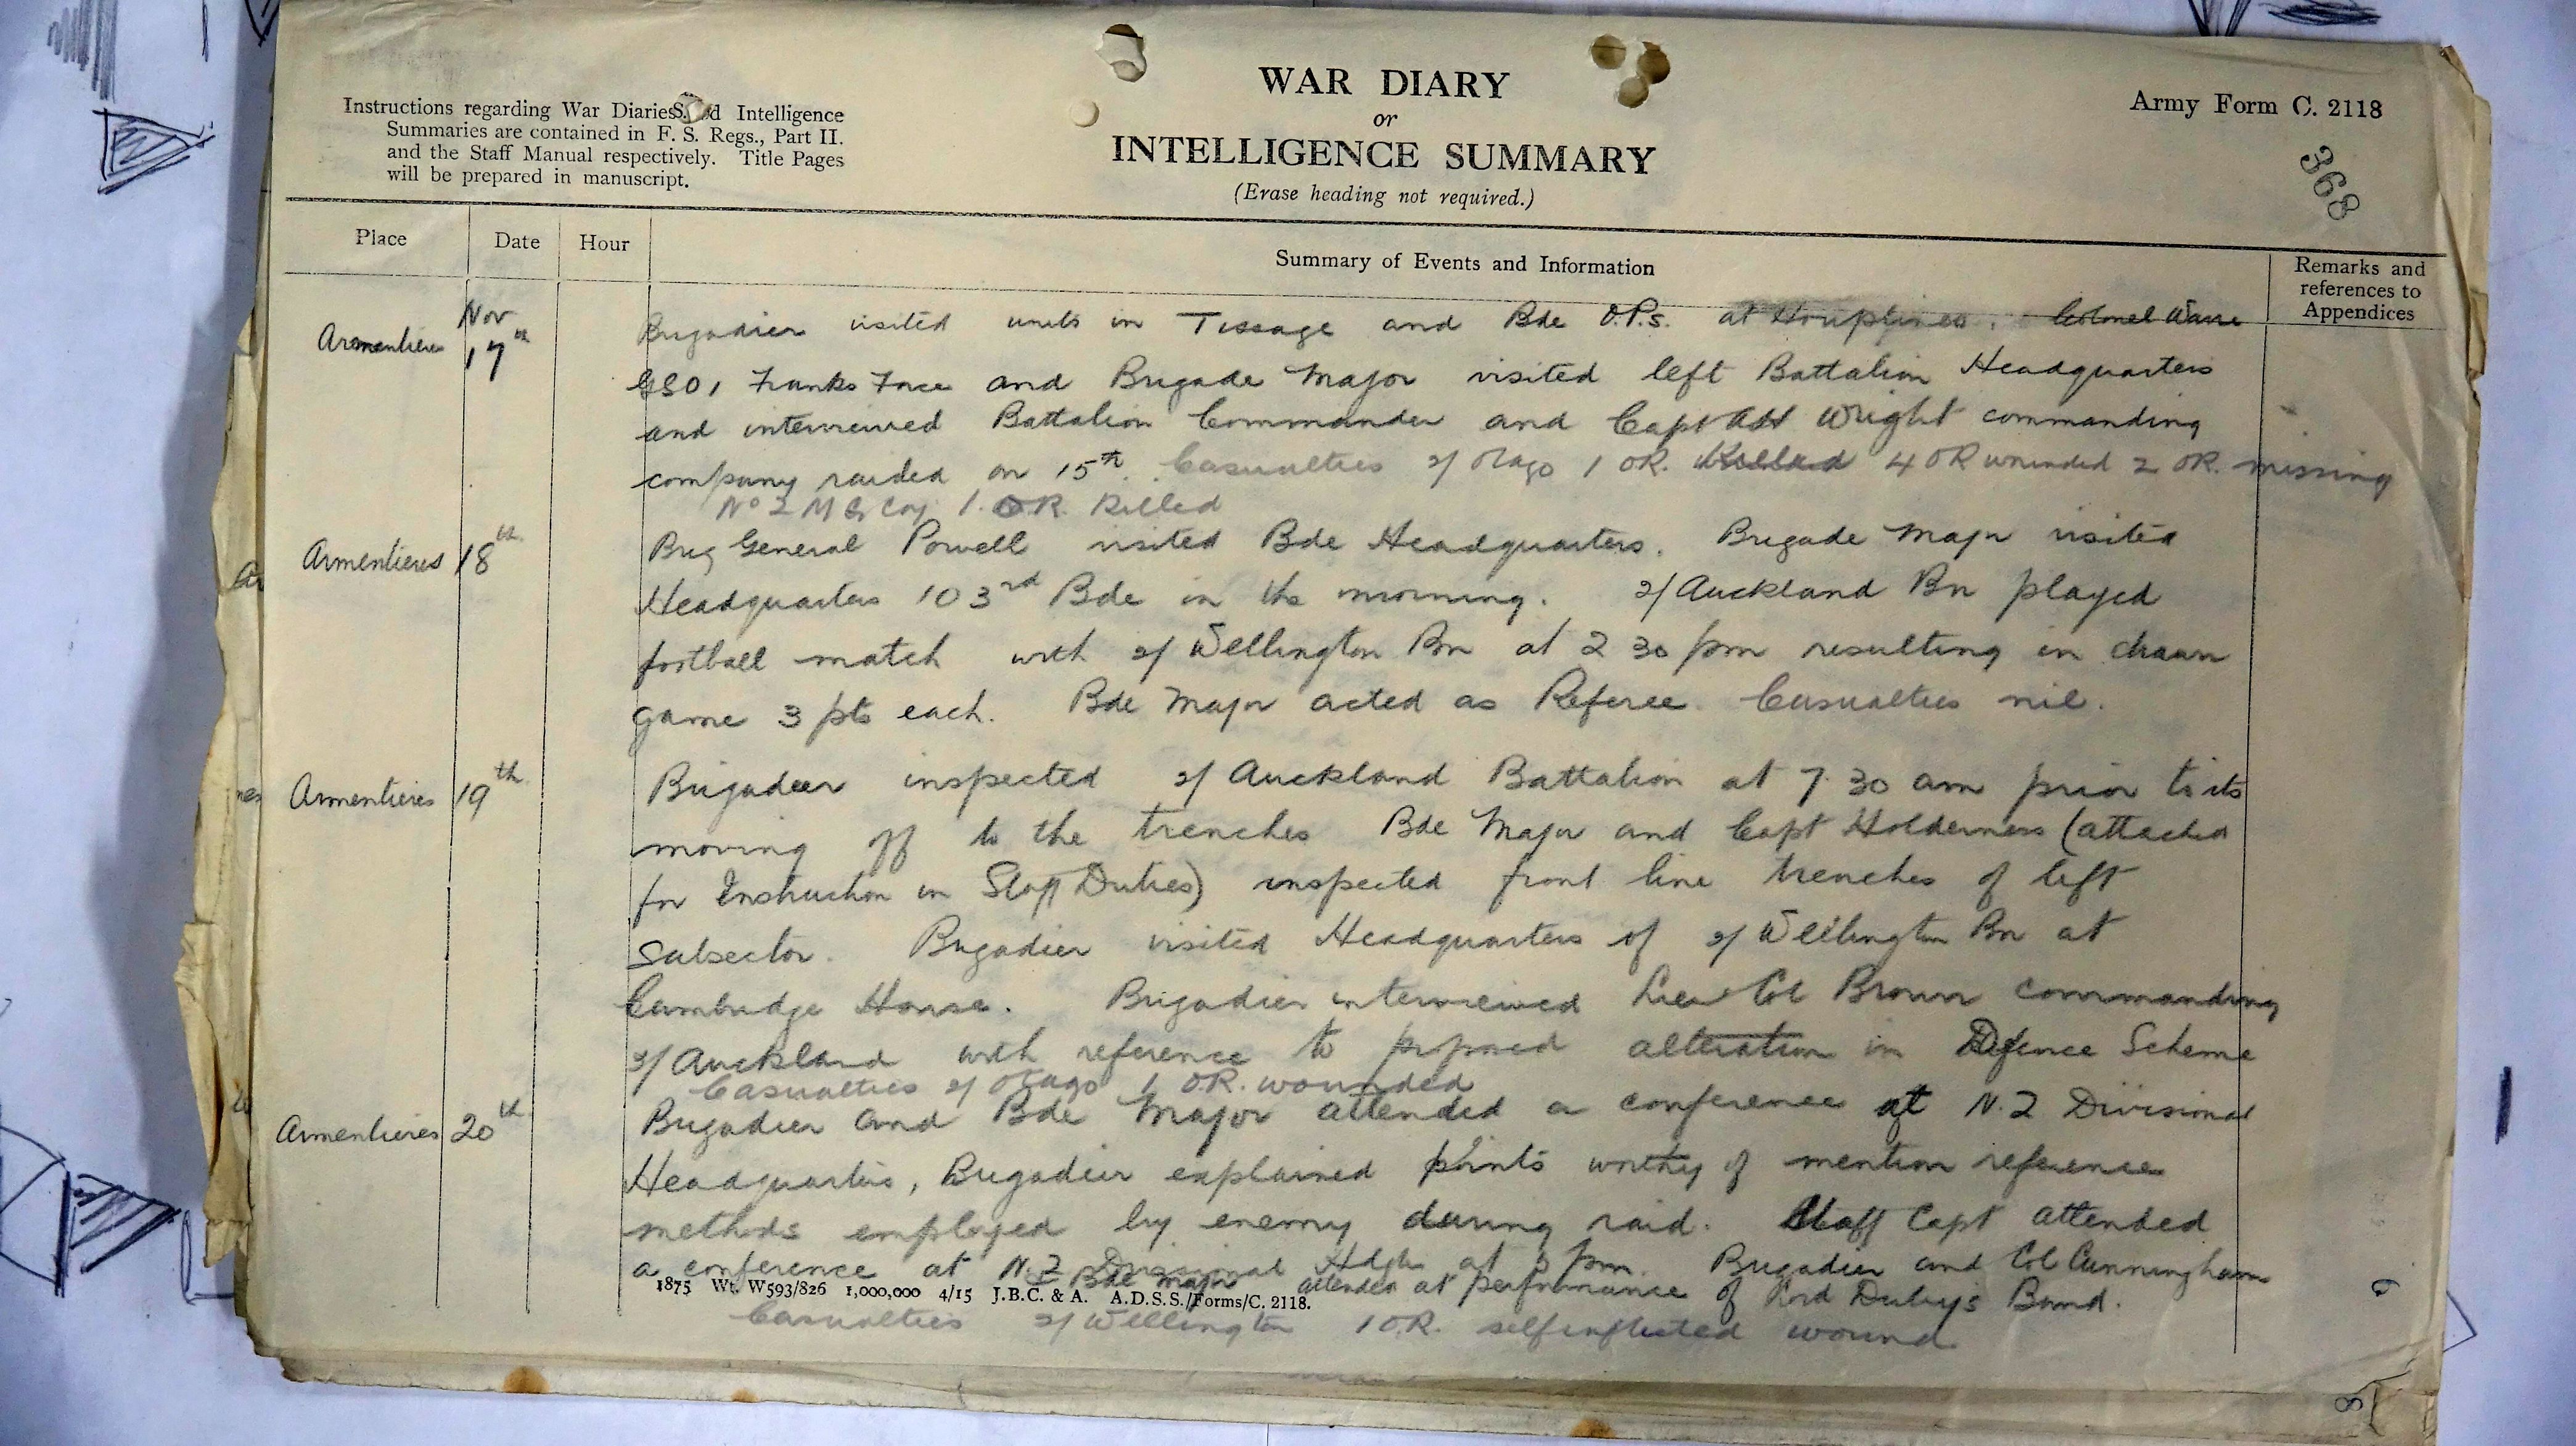 Instructions regarding War Diaries and Intelligence
Summaries are contained in F. S. Regs., Part II.
and the Staff Manual respectively. Title Pages
will be prepared in manuscript.
WAR DIARY
or
INTELLIGENCE SUMMARY
(Erase heading not required.)
Army Form C. 2118
368
Place Date Hour Summary of Events and Information Remarks and references to Appendices
Armentieres Nov 17th Brigadier visited units in Tissage and Bde O.P.s. at Houplines. Colonel
GSO1 Franks Force and Brigade Major visited left Battalion Headquarters
and interviewed Battalion Commander and Capt Wright commanding
company raided on 15th. Casualties 2/Otago 1 OR. killed 4 OR wounded 2 OR. missing
No 2 M G Coy 1. O.R. killed
Armentieres 18th Brig General Powell visited Bde Headquarters. Brigade Major visited
Headquarters 103rd Bde in the morning. 2/Auckland Bn played
football match with 2/Wellington Bn at 2 30 pm resulting in drawn
game 3 pts each. Bde Major acted as Referee. Casualties nil.
Armentieres 19th Brigadier inspected 2/Auckland Battalion at 7.30 am prior to its
moving off to the trenches Bde Major and Capt Holderness (attached
for Instruction in Staff Duties) inspected front line trenches of left
subsector. Brigadier visited Headquarters of 2/Wellington Bn at
Cambridge House. Brigadier interviewed Lieu Col Brown commanding
2/Auckland with reference to proposed alteration in Defence Scheme
Casualties 2/Otago 1 O.R. wounded
Armentieres 20th Brigadier and Bde Major attended a conference at N.Z Divisional
Headquarters, Brigadier explained points worthy of mention reference
methods employed by enemy during raid. Staff Capt attended
a conference at N.Z Divisional Hdqtrs at pm. Brigadier and Col Cunningham
Bde Major attended at performance of Lord Band.
1875 Wt. W593/826 1,000,000 4/15 J.B.C. & A. A.D.S.S./Forms/C. 2118.
Casualties 2/Wellington 1 O.R. selfinflicted wound